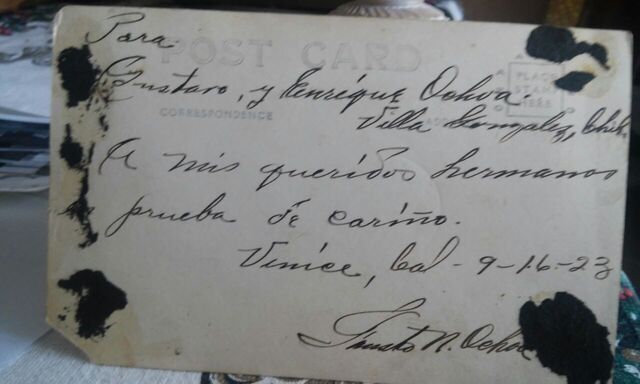 Para
POST CARD
Gustavo, y Enrique Ochoa.
PLACE
STAMP
HERE
CORRESPONDENCE
Villa Gonzalez, Chih.
A mis queridos hermanos
prueba de cariño.
Venice, Cal - 9-16-23
Fausto N. Ochoa